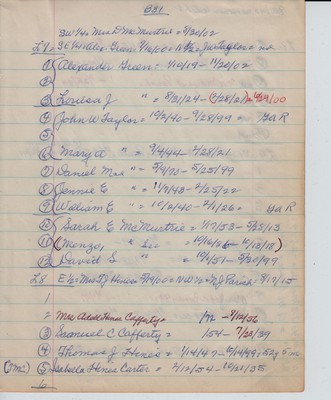 B31
SW¼ = Mrs D McMurtrie = 8/20/02
L7 = SE¼ = Alex. Green = 9/10/00 = N½ = Jno Taylor =
① Alexander Green = 1/10/19 - 11/20/02
②
③ Lovisa J " = 8/31/24 -
④ John W Taylor = 10/2/40 - 9/28/99 = GaR
⑤
⑥ Mary A " = 9/4/44 - 2/28/21
⑦ Daniel " = 5/9/70 - 5/25/99
⑧ Jennie E " = 11/7/48 - 2/25/22
⑨ William E " = 10/2/40 - 2/1/26 = GaR
⑩ Sarah E McMurtrie = 1/17/53 - 5/28/13
⑪ (Menzo, " Sr = 10/16/56 - 10/13/18)
⑫ David S " = 10/1/51 - 9/30/99
L8 E½ = Mrs T J Hines = 9/19/00 = NW¼ = N J Parish = 9/17/15
1
2 Mrs Adell Hines Cafferty = - 9/10/56
③ Emanuel C Cafferty = 1854 - 7/22/39
④ Thomas J Hines = 1/14/47 - 6/14/99; 52y 5m
(Mrs) ⑤ Isabella Hines Carter = 2/12/54 - 10/21/35
6